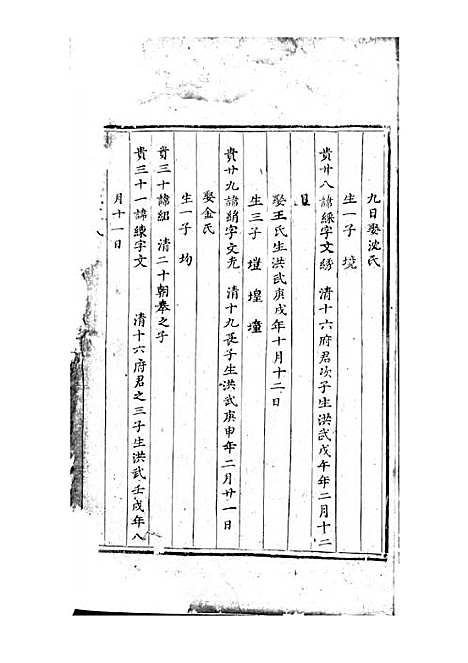 九日娶沈氏
生一子 境
貴廿八諱綵字文綉 清十六府君次子生洪武戊午年二月十二
日
娶王氏生洪武庚戌年十月十二日
生三子 塏 堭 墥
貴廿九諱綃字文充 清十九長子生洪武庚申年二月廿一日
娶金氏
生一子 均
貴三十諱紹 清二十朝奉之子
貴三十一諱練字文 清十六府君之三子生洪武壬戌年八
月十一日